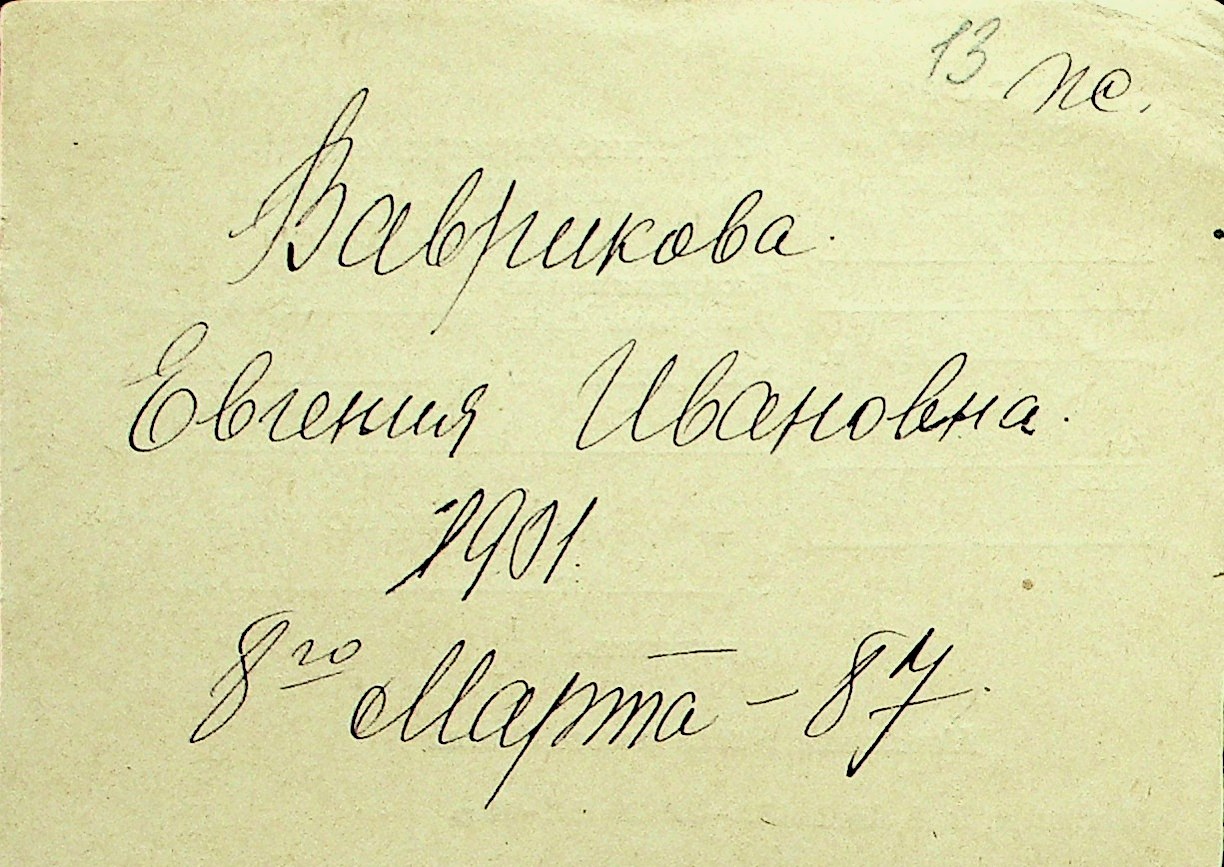 13 пс.
Ваврикова.
Евгения Ивановна.
1901.
8го Марта - 87.